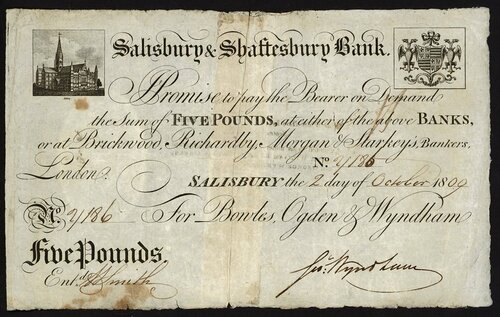 Salisbury & Shaftesbury Bank.
I Promise to pay the Bearer on Demand
the Sum of FIVE POUNDS, at either of the above BANKS,
or at Brickwood, Richardby, Morgan & Starkey's, Bankers,
London.
No. 4186
SALISBURY the 2 day of October 1800
No. 4186
For Bowles, Ogden & Wyndham
Five Pounds.
Entd. Smith
Wyndham